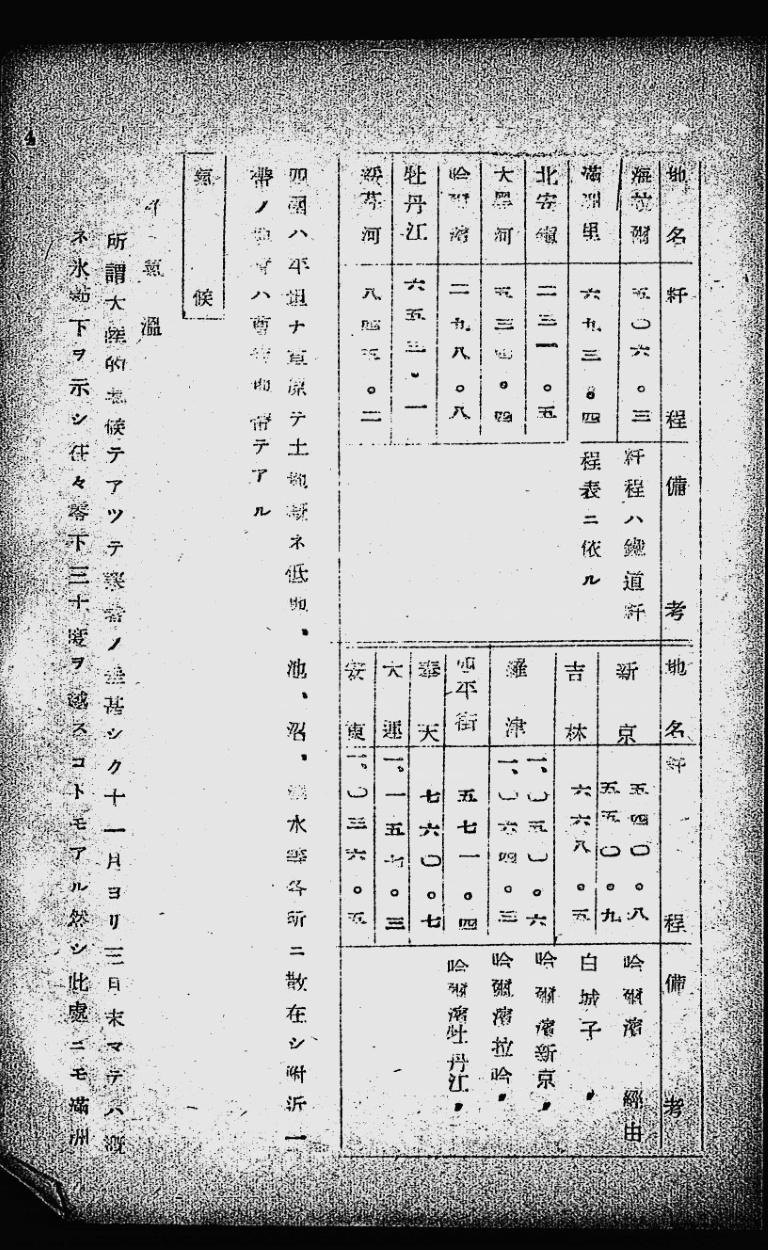 4
地名 粁程 備考
海拉爾 五〇六。三 粁程ハ鐵道粁
滿洲里 六九三。四 程表ニ依ル
北安鎭 二三一。五
大黑河 五三四。四
哈爾濱 二九八。八
牡丹江 六五三。一
綏芬河 八四五。二
地名 粁程 備考
新京 五四〇。八 哈爾濱 經由
五五〇。九
吉林 六六八。五 白城子 〃
羅津 一、〇五〇。六 哈爾濱新京〃
一、〇六四。三 哈爾濱拉哈〃
四平街 五七一。四 哈爾濱牡丹江〃
奉天 七六〇。七
大連 一、一五七。三
安東 一、〇三六。五
四圍ハ平坦ナ草原テ土地概ネ低凹、池、沼、水等各所ニ散在シ附近一
帶ノハ曹達地帶テアル
氣候
イ 氣溫
所謂大陸的氣候テアツテ寒暑ノ差甚シク十一月ヨリ三月末マテハ概
ネ氷點下ヲ示シ往々零下三十度ヲ越スコトモアル然シ此處ニモ滿洲